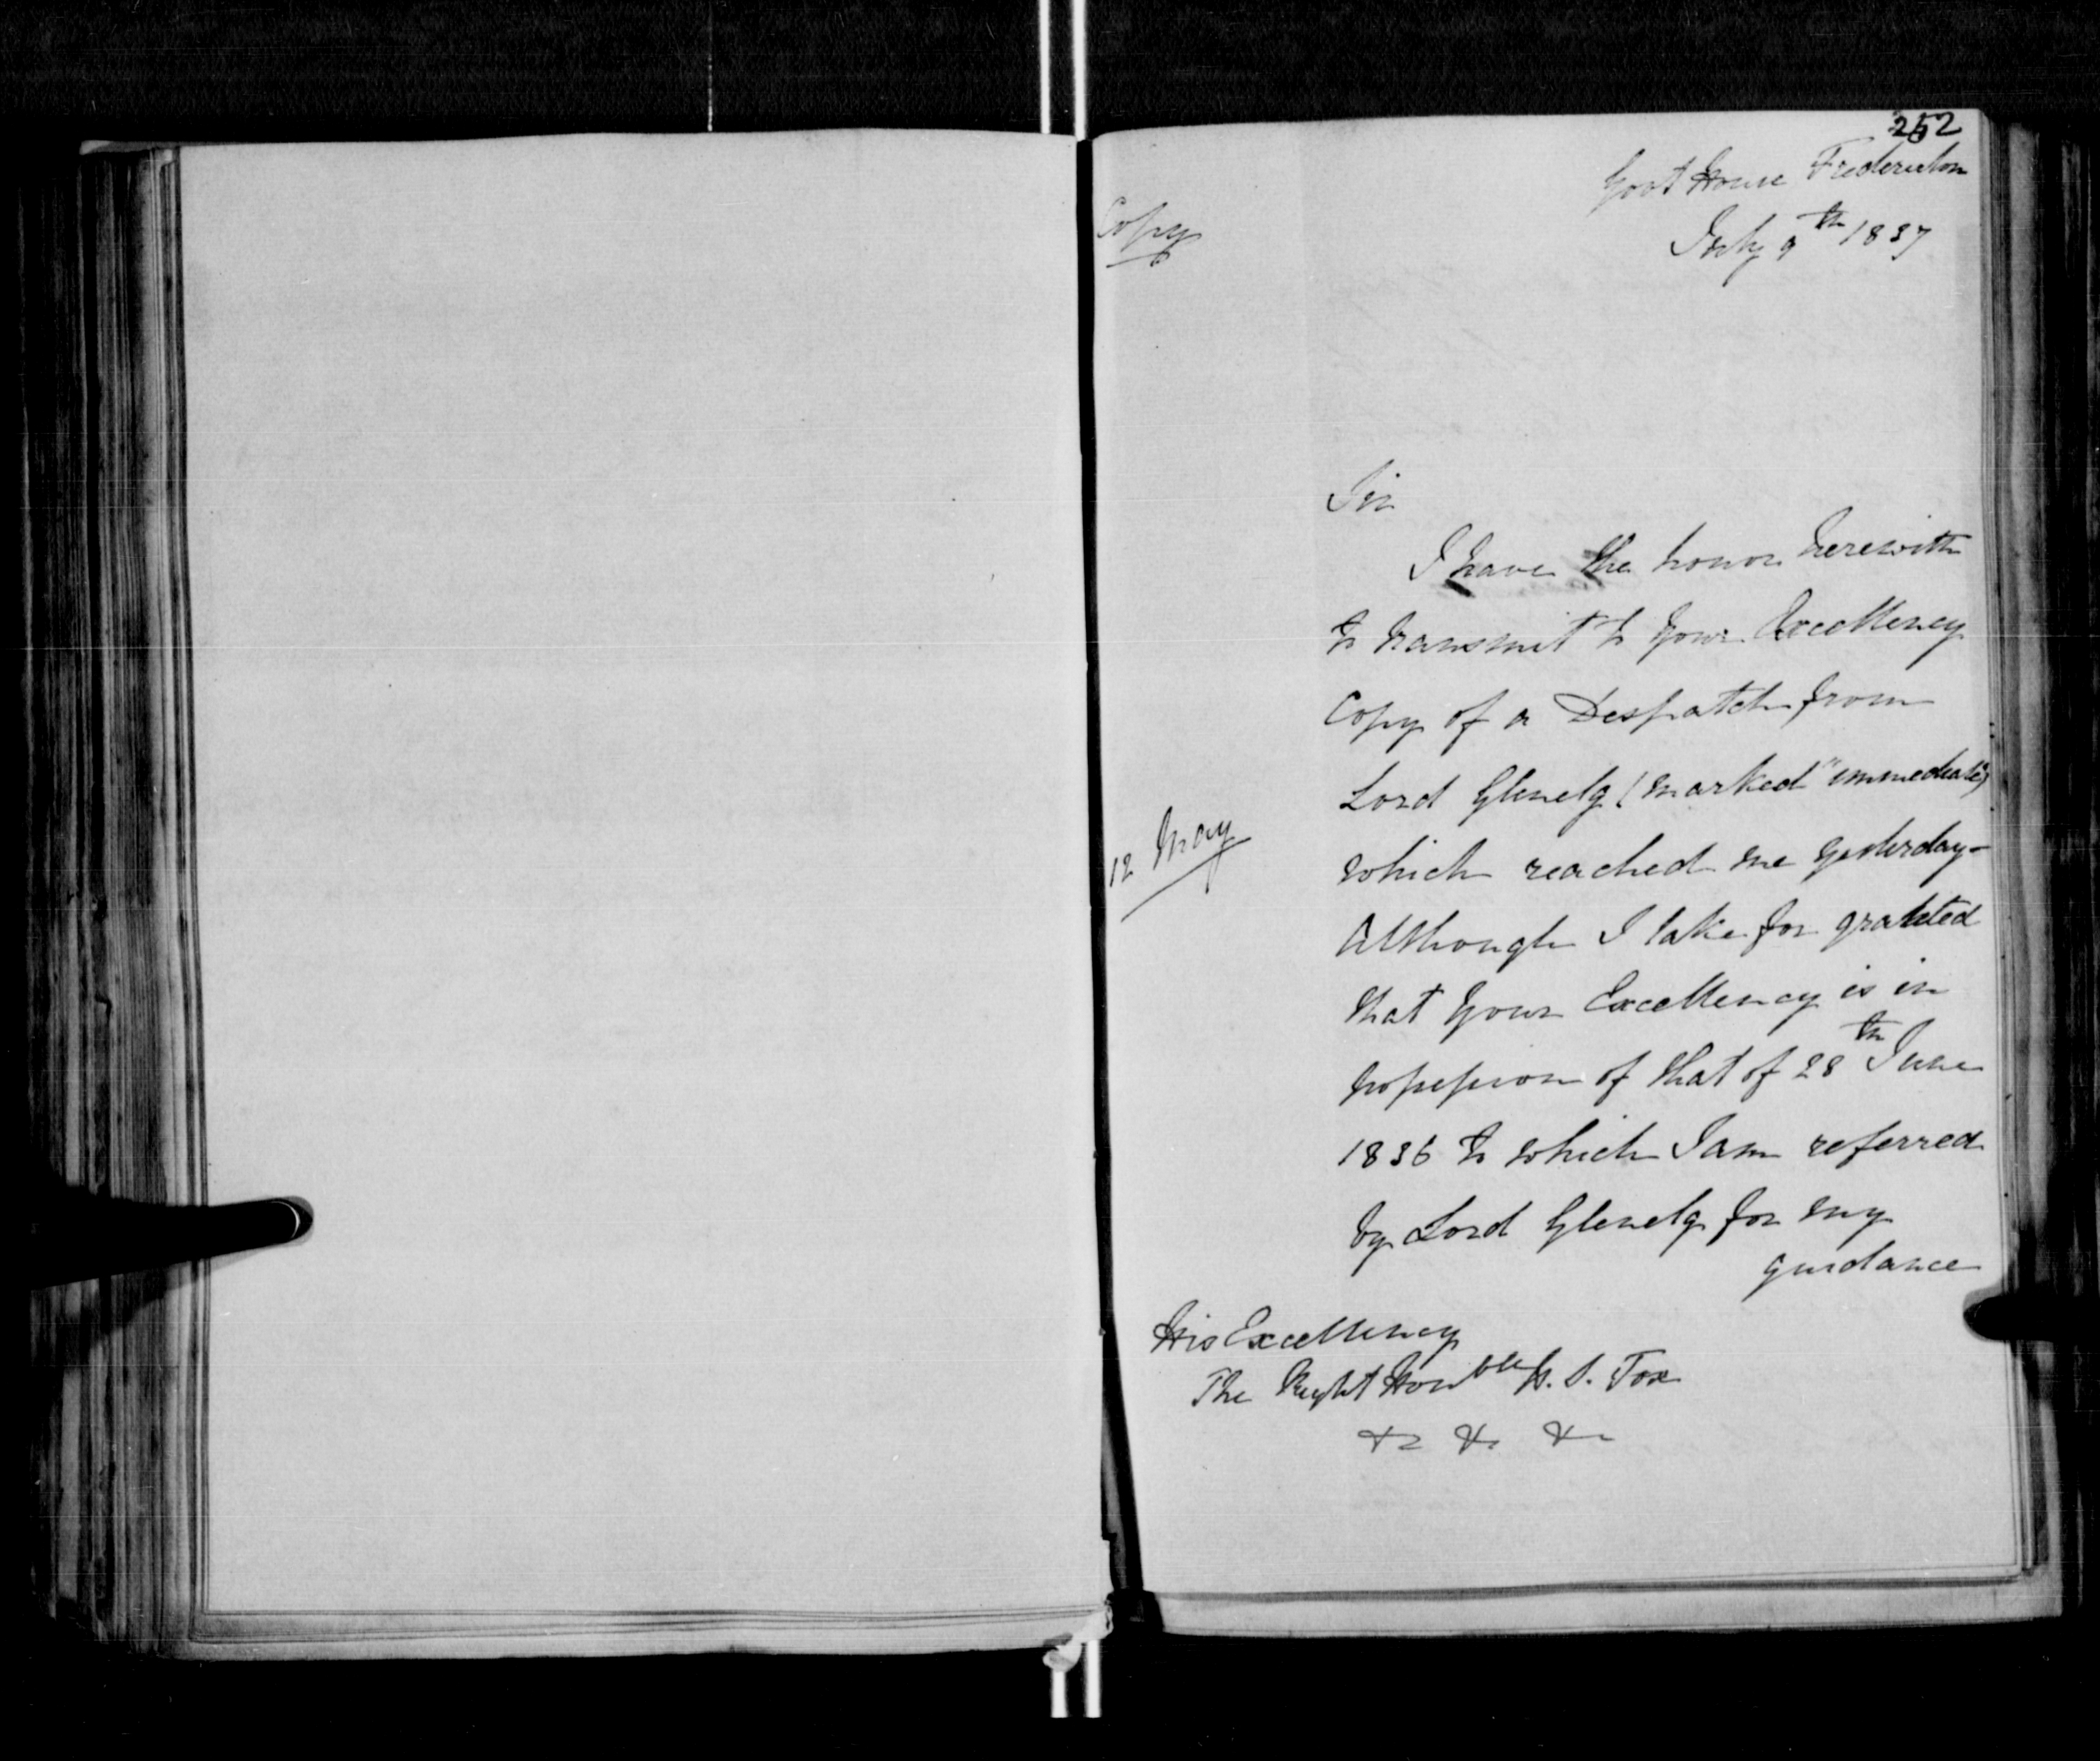 252
Govt House Fredericton
Copy
July 9th 1837
Sir
I have the honor herewith
to transmit to Your Excellency
Copy of a Despatch from
Lord Glenelg (marked "immediate")
12 May
which reached me yesterday-
Although I take for granted
that Your Excellency is in
possession of that of 28th June
1836 to which I am referred
by Lord Glenelg for my
guidance
His Excellency
The Right Honble H. S. Fox
&c &c &c